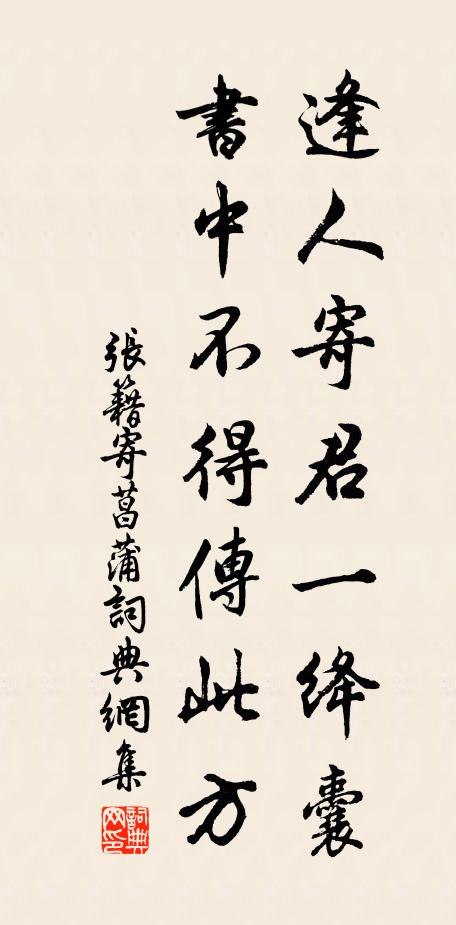 逢人寄君一绛囊
書中不得傳此方
張籍寄菖蒲詞典網集
詞典網印